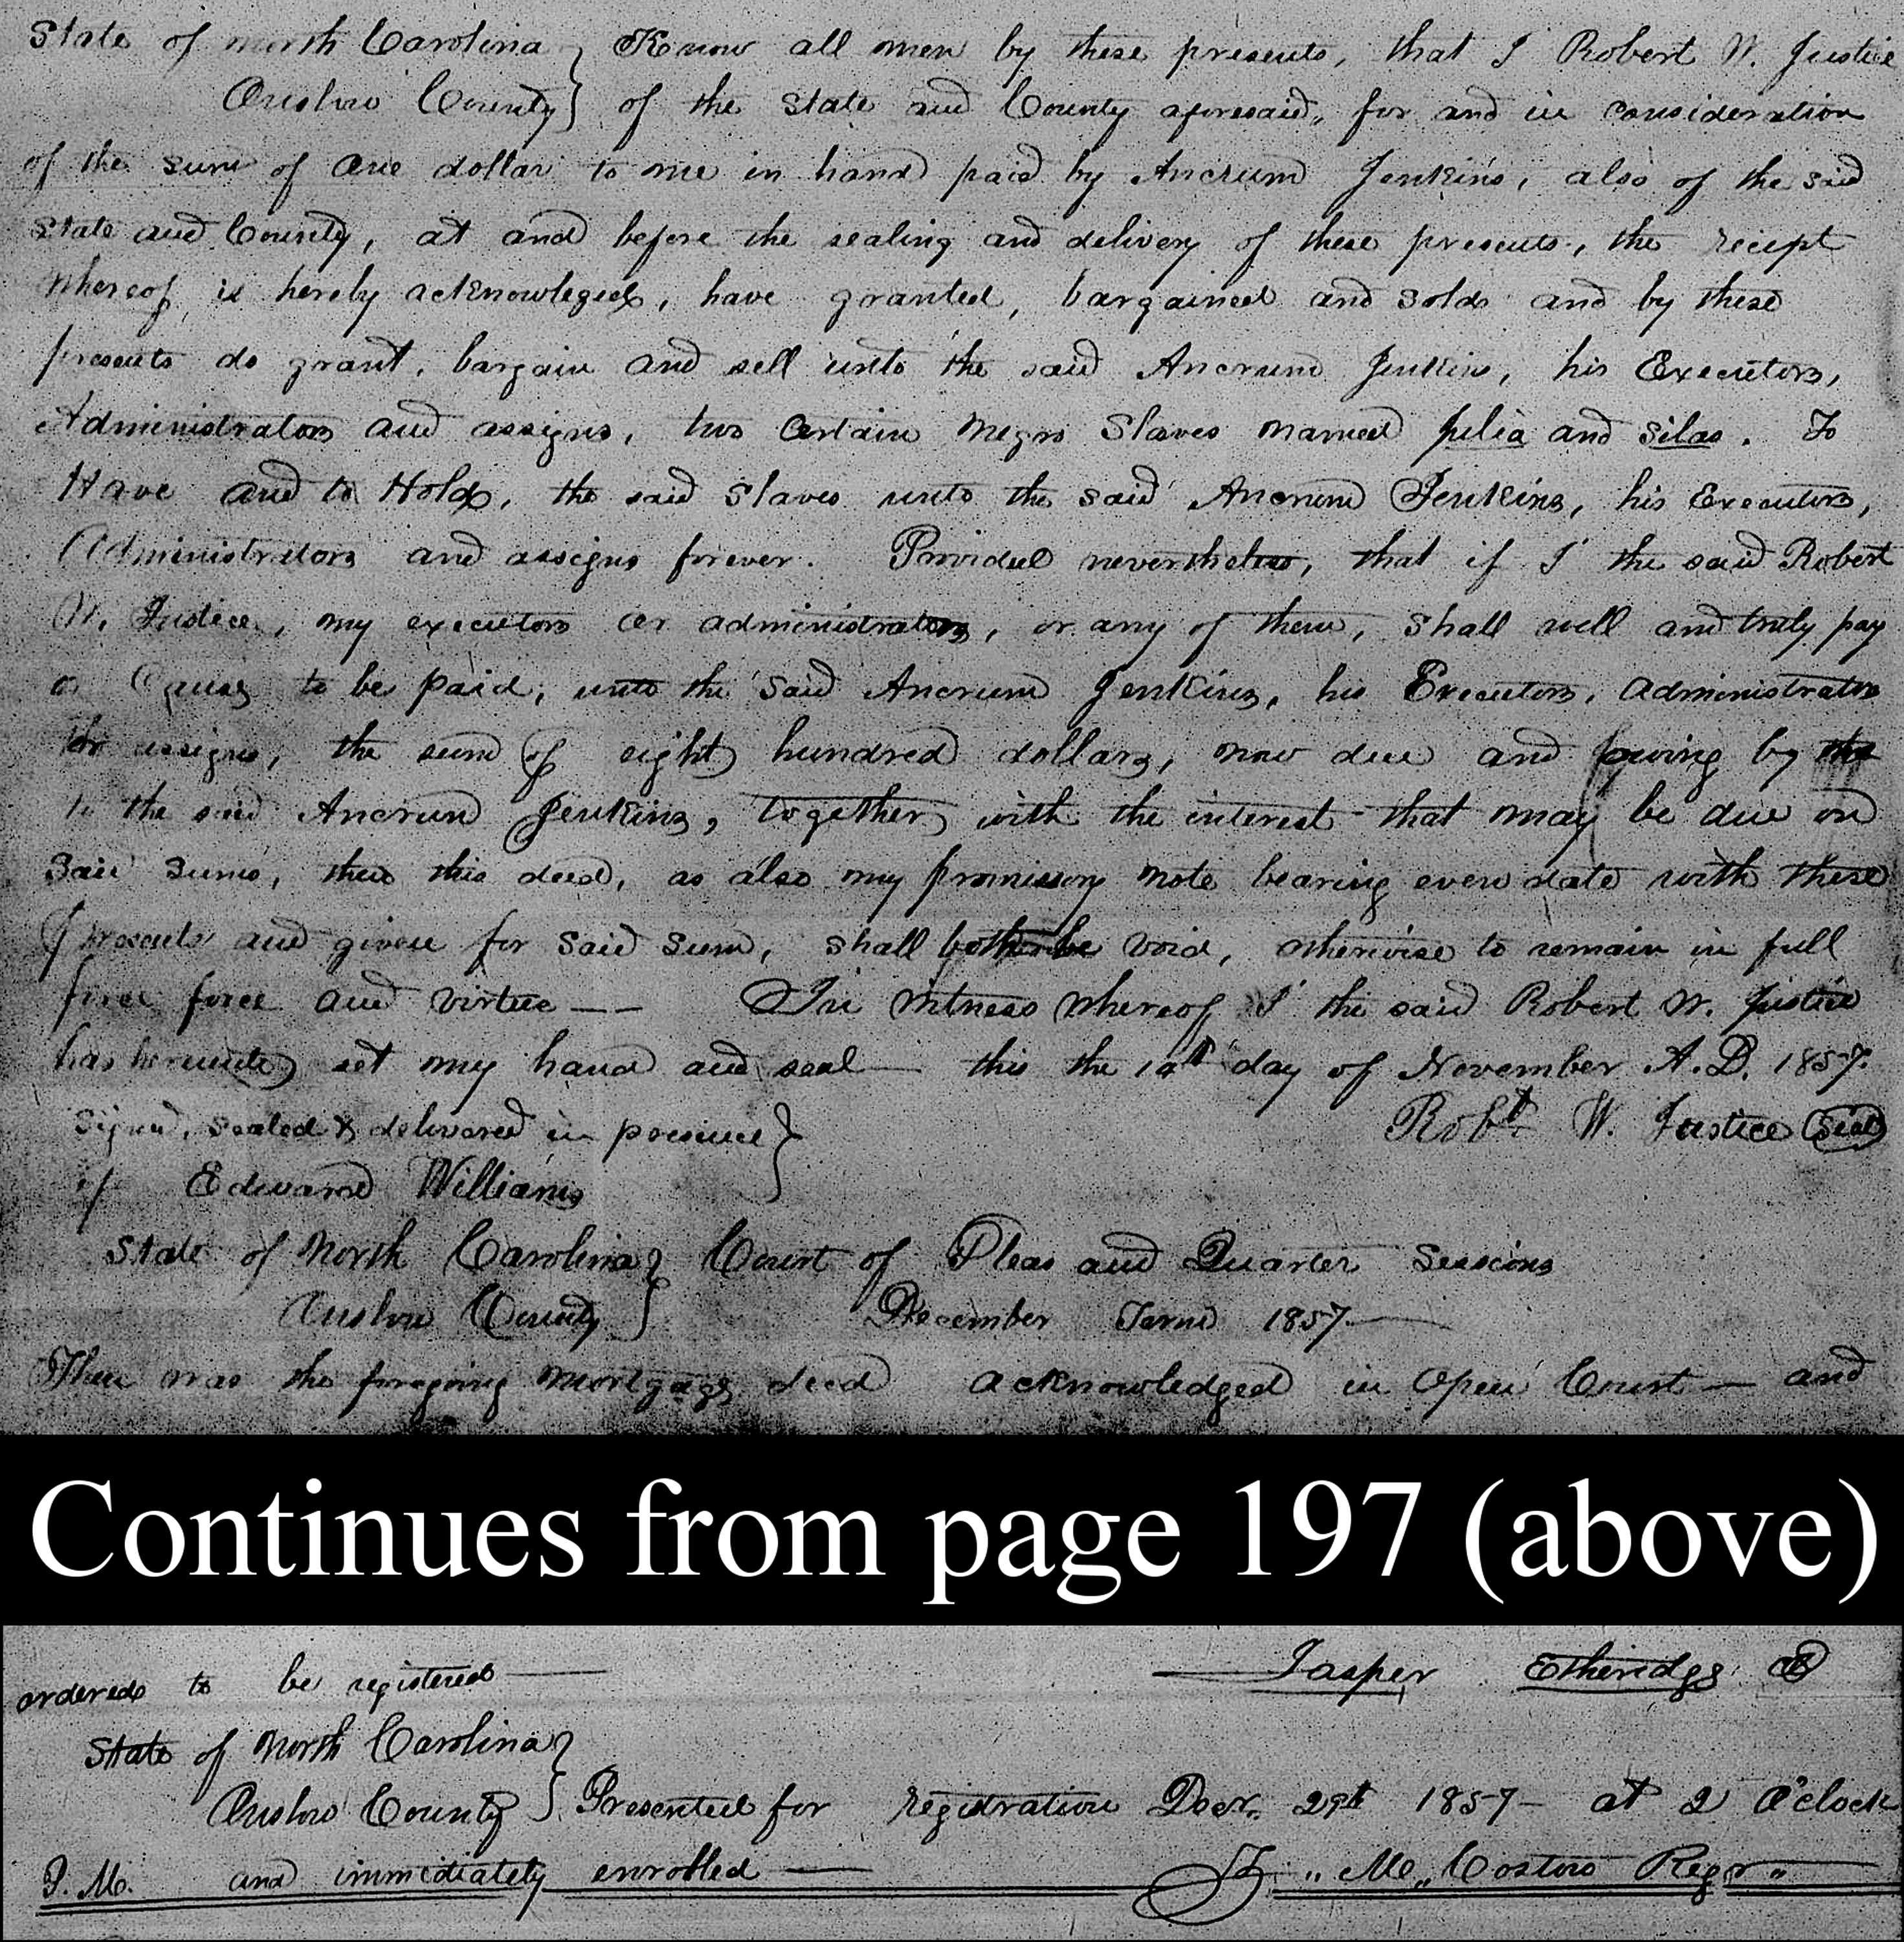 State of north Carolina } Know all men by these presents, that I Robert W. Justice
Onslow County } of the State and County aforesaid, for and in consideration
of the sum of One dollar to me in hand paid by Ancrum Jenkins, also of the said
State and County, at and before the sealing and delivery of these presents, the reciept
whereof is hereby acknowleged, have granted, bargained and sold and by these
presents do grant, bargain and sell unto the said Ancrum Jenkins, his Executors,
Administrators and assigns, two certain negro Slaves named Julia and Silas. To
Have and to Hold, the said slaves unto the said Ancrum Jenkins, his Executors,
Administrators and assigns forever. Provided nevertheless, that if I the said Robert
W. Justice, my executors or administrators, or any of them, shall well and truly pay
or Cause to be paid, unto the said Ancrum Jenkins, his Executors, administrators
or assigns, the sum of eight hundred dollars, now due and owing by
to the said Ancrum Jenkins, together with the interest that may be due on
said sums, then this deed, as also my promissory note bearing even date with these
presents and given for said sum, shall both be void, otherwise to remain in full
force force and virtue — — In witness whereof I the said Robert W. Justice
has hereunto set my hand and seal — this the day of November A.D. 1857.
Signed, sealed & delivered in presence } Robt. W. Justice (Seal)
of Edward Williams
State of North Carolina } Court of Pleas and Quarter Sessions
Onslow County } December Term 1857 —
Then was the foregoing mortgage deed acknowledged in Open Court — and
Continues from page 197 (above)
ordered to be registered — — Jasper Etheridge
State of North Carolina }
Onslow County } Presented for registration Decr. 29th 1857 — at 2 O'clock
P.M. and immediately enrolled — „ M „ Costin Regr „